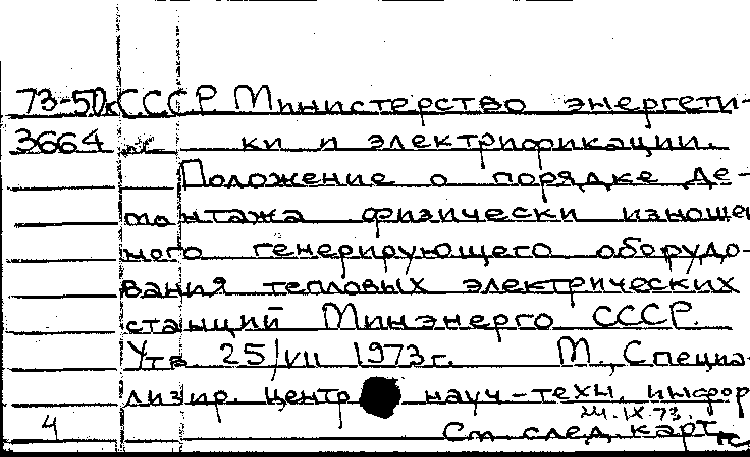 73-5Дк СССР. Министерство энергети-
3664 ки и электрификации.
Положение о порядке де-
монтажа физически изношен
ного генерирующего оборудо-
вания тепловых электрических
станций Минэнерго СССР.
Утв. 25/VII 1973г. М., Специа-
лизир. центр науч-техн. инфор
24.IX.73.
4 См. след. карт.